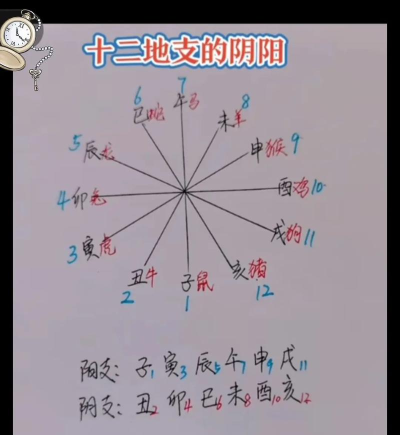 十二地支的阴阳
7
午马
6
巳蛇
8
未羊
5
辰龙
申猴 9
4 卯兔
酉鸡 10
3 寅虎
戌狗 11
丑牛
2
子鼠
1
亥猪
12
阳支: 子1 寅3 辰5 午7 申9 戌11
阴支: 丑2 卯4 巳6 未8 酉10 亥12